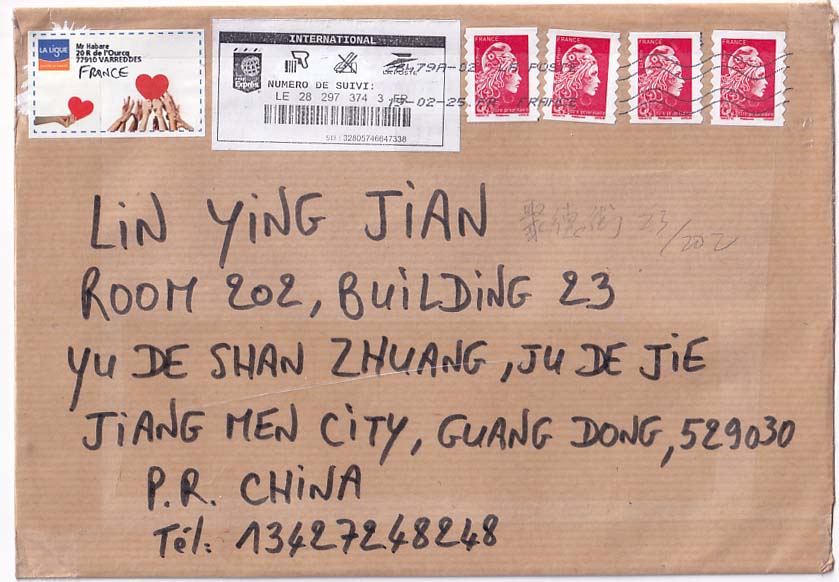 LA LIGUE
Mr Habare
20 R de l'Ourcq
77910 VARREDDES
FRANCE
INTERNATIONAL
LA POSTE
NUMERO DE SUIVI:
LE 28 297 374 3 FR
SD : 32805746647338
FRANCE
FRANCE
FRANCE
FRANCE
79A-02
19-02-25 FR FRANCE
LiN YiNG JiAN
聚德街 23/202
ROOM 202, BUiLDiNG 23
YU DE SHAN ZHUANG, JU DE JiE
JiANG MEN CiTY, GUANG DONG, 529030
P.R. CHiNA
Tél: 13427248248